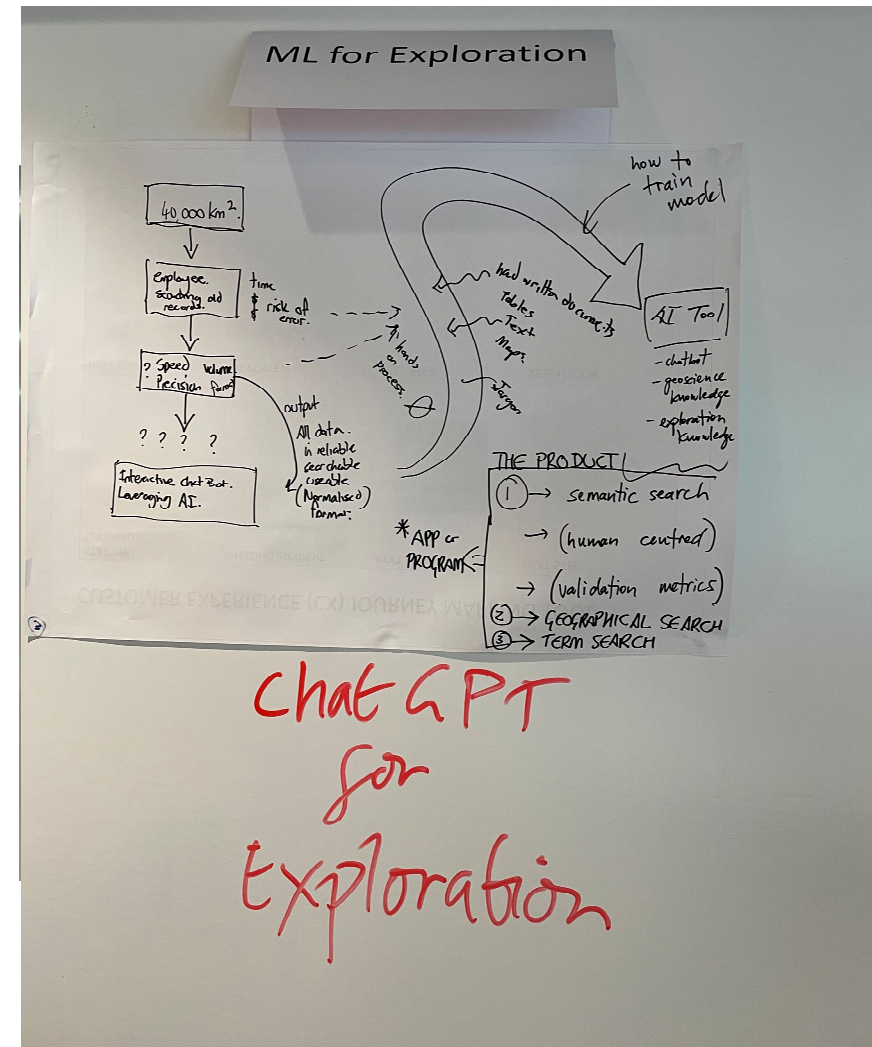 ML for Exploration
40,000 km².
Employee.
Scouting old
records.
time
$ risk of
error.
? Speed Volume
Precision format
? ? ? ?
Interactive chatBot.
Leveraging AI.
output
All data.
in reliable
searchable
useable
(Normalised)
format.
hands
on
process.
how to
train
model
had written documents
Tables
Text
Maps.
Jargon
AI Tool
- chatbot
- geoscience
knowledge
- exploration
knowledge
THE PRODUCT
1 → semantic search
→ (human centred)
→ (validation metrics)
2 → GEOGRAPHICAL SEARCH
3 → TERM SEARCH
* APP or
PROGRAM
CUSTOMER EXPERIENCE (CX) JOURNEY MAP
2
Chat GPT
for
Exploration